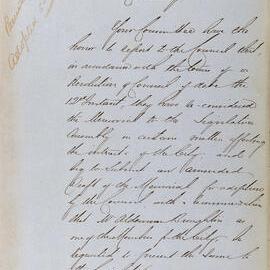 Your Committee have the
honor to report to the Council that
in accordance with the terms of a
Resolution of Council of date the
12th Instant they have re considered
the Memorial to the Legislative
Assembly on certain matters affecting
the interests of the City and
beg to submit an amended
Draft of the Memorial for adoption
by the Council with a recommendation
that Mr Alderman
one of the Members for the City be
requested to present the same to